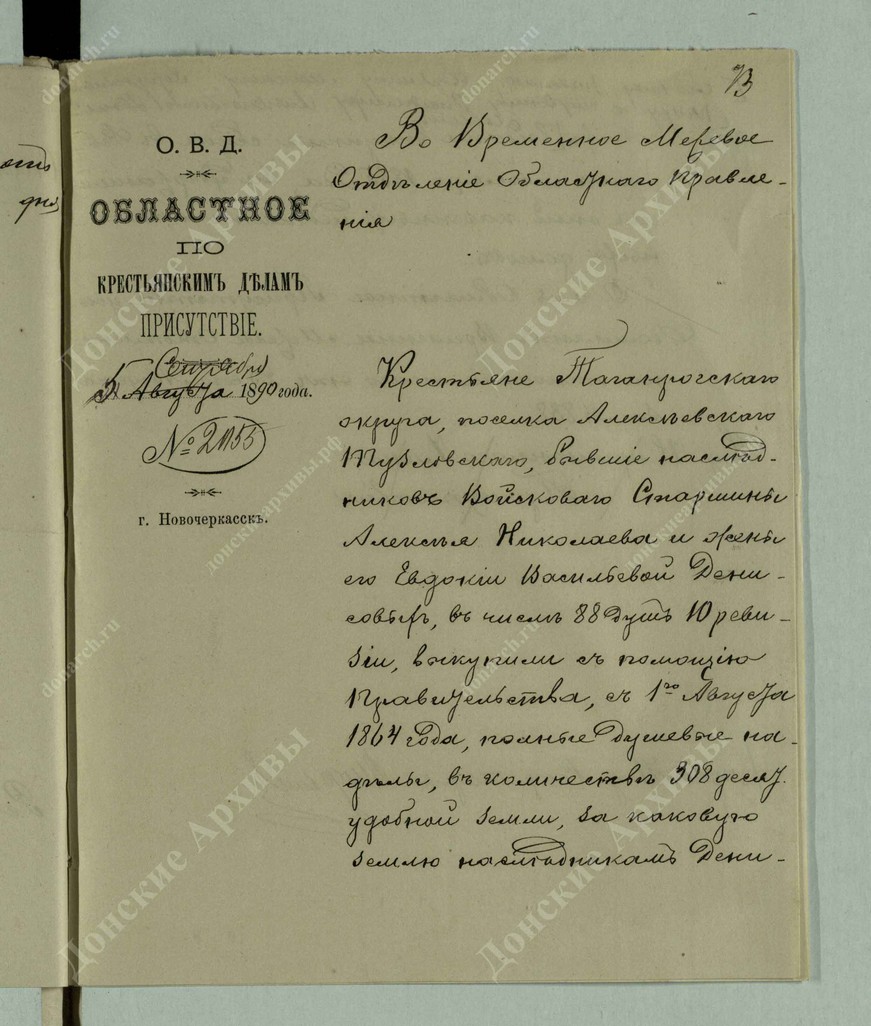 73
О. В. Д.
ОБЛАСТНОЕ
ПО
КРЕСТЬЯНСКИМЪ ДѢЛАМЪ
ПРИСУТСТВІЕ.
Сентября
5 Августа 1890 года.
№ 2155
г. Новочеркасскъ.
Во Временное Межевое
Отдѣленіе Областнаго Правле-
нія
Крестьяне Таганрогскаго
округа, поселка Алексѣевскаго
Тузловскаго, бывшіе наслѣд-
никовъ Войсковаго Старшины
Алексѣя Николаева и жены
его Евдокіи Васильевой Дени-
совыхъ, въ числѣ 88 душъ 10 реви-
зіи, выкупили съ помощію
Правительства, съ 1го Августа
1864 года, полные душевые на-
дѣлы, въ количествѣ 308 десят.
удобной земли, за каковую
землю наслѣдникамъ Дени-
отъ
дня
Донские Архивы
donarch.ru
донскиеархивы.рф